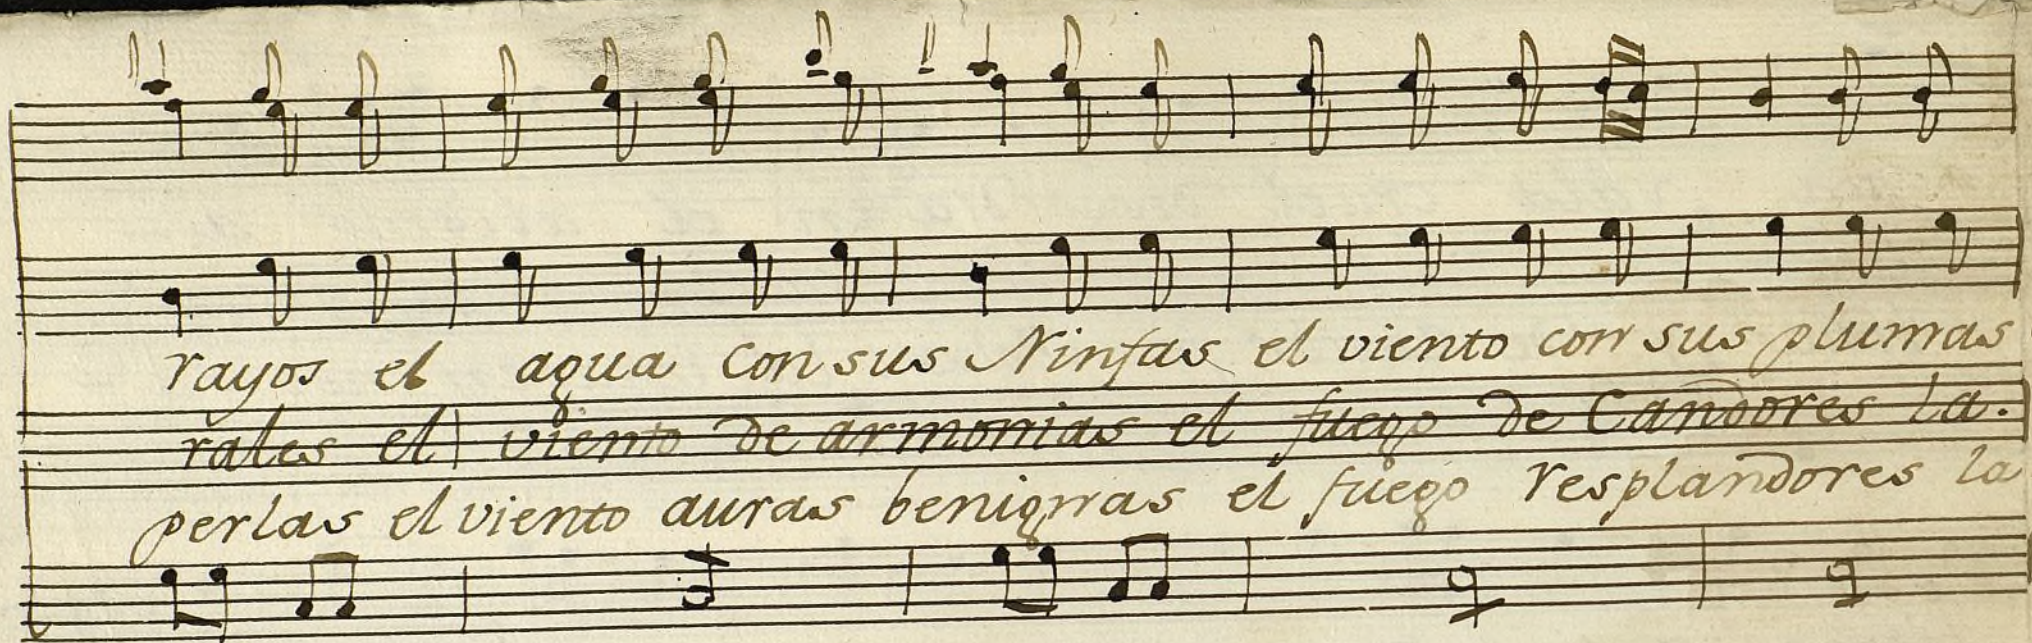 rayos el agua con sus Ninfas el viento con sus plumas
rales el viento de armonias el fuego de Candores la.
perlas el viento auras benignas el fuego resplandores la